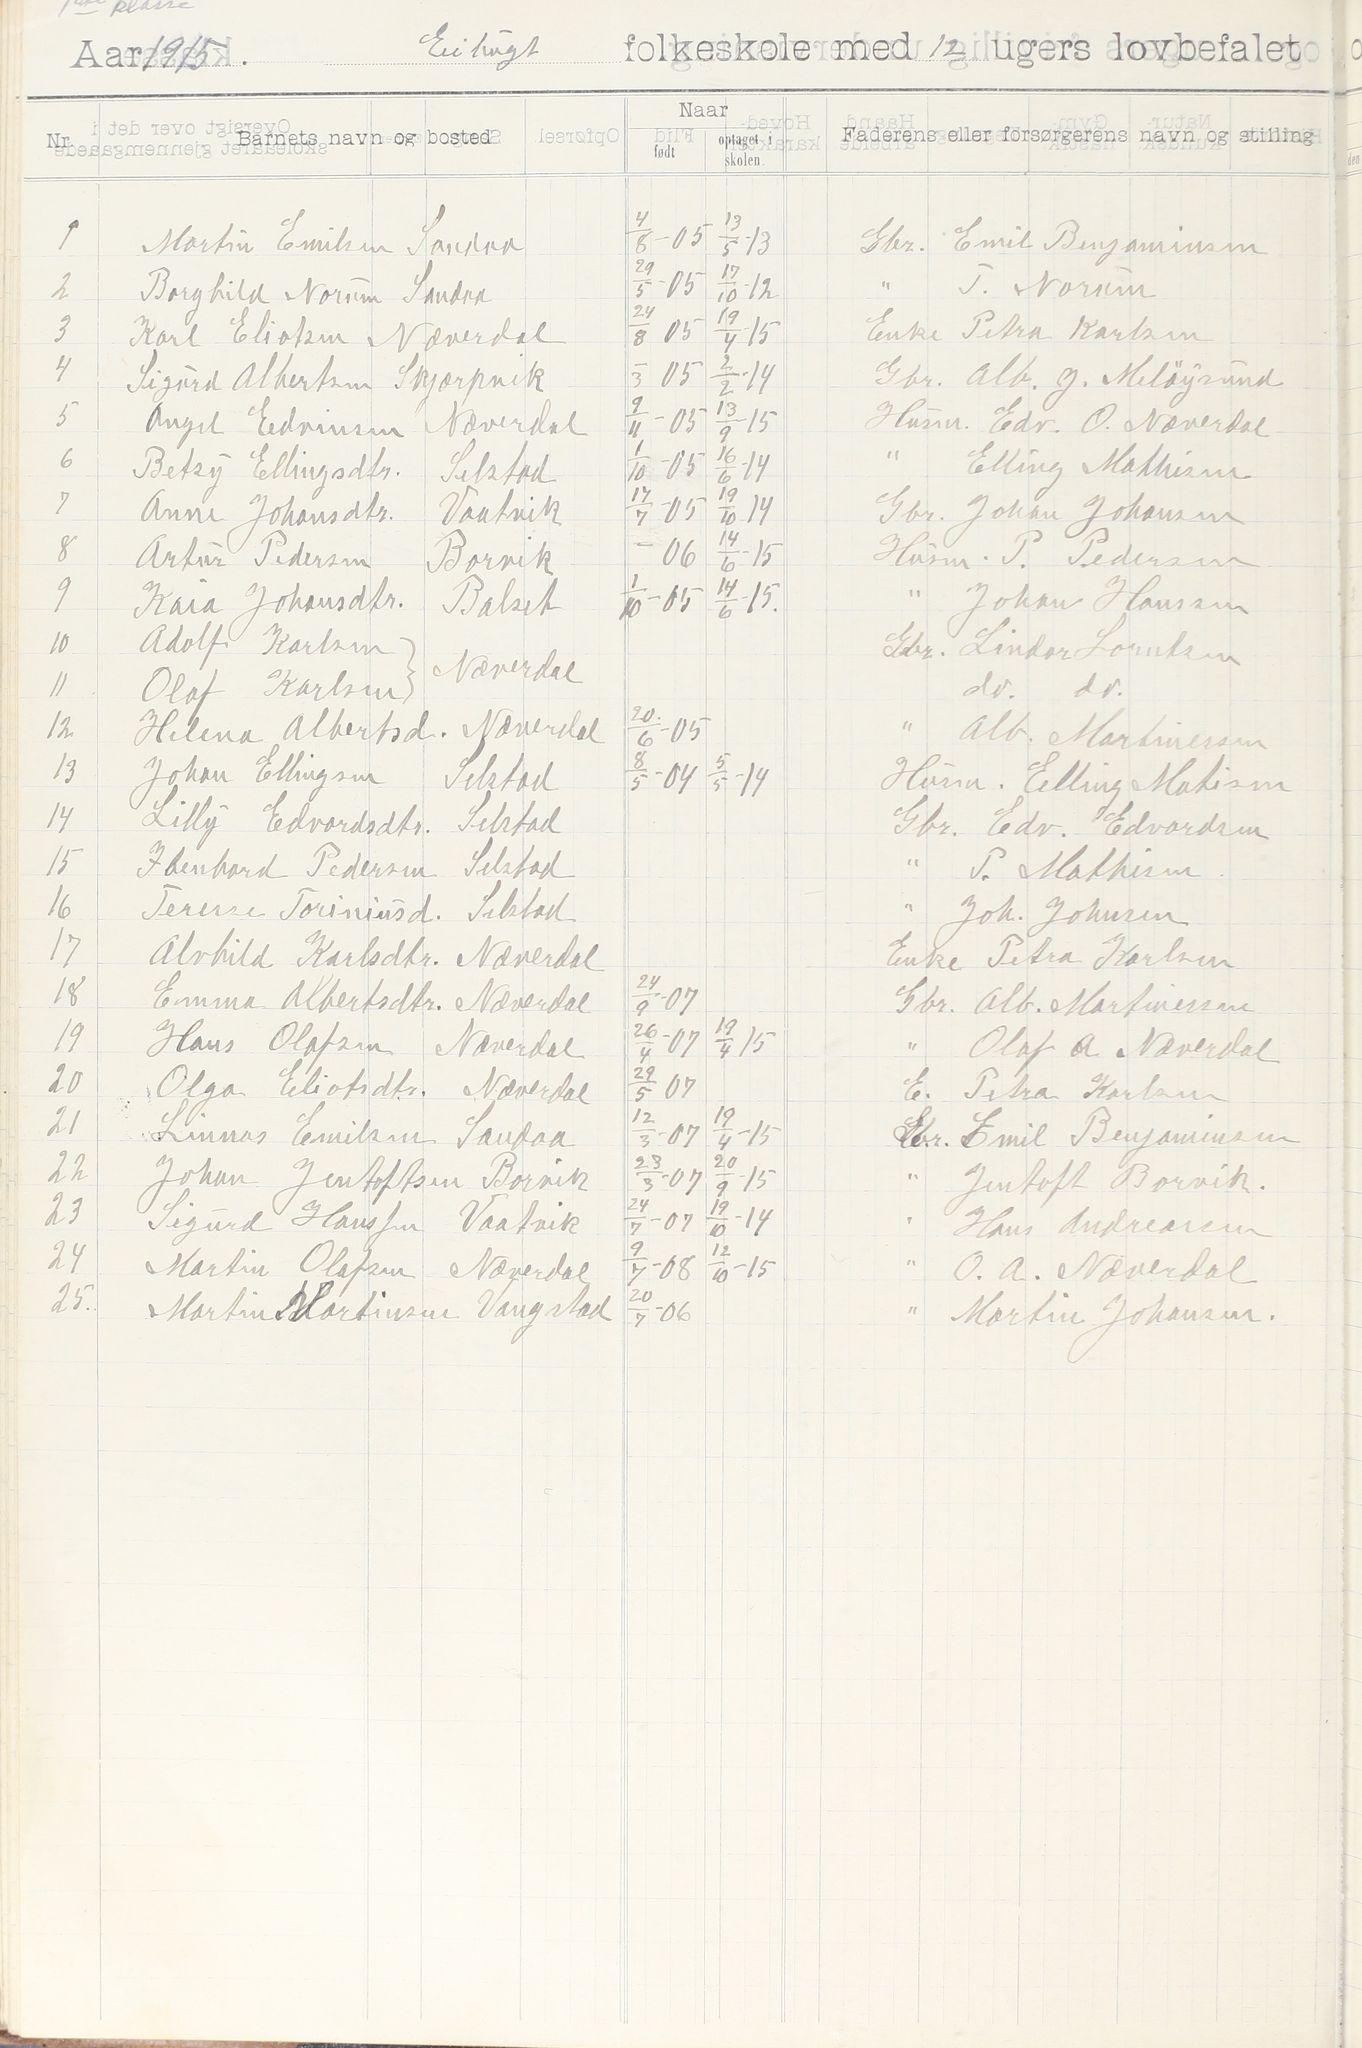 1ste klasse
Aar 1915. folkeskole med 12 ugers lovbefalet
Nr. Barnets navn og bosted Naar født optaget i skolen. Faderens eller forsørgerens navn og stilling
1 Martin Emilsen Sandaa 4/8-05 13/5-13 Gbr. Emil Benjaminsen
2 Borghild Norum Sandaa 29/5-05 17/10-12 " T. Norum
3 Karl Eliotsen Næverdal 24/8 05 19/4-15 Enke Petra Karlsen
4 Sigurd Albertsen Skjærpvik /3 05 2/2-14 Gbr. Alb. J. Meløysund
5 Angel Edvinsen Næverdal 9/11-05 13/9-15 Husm. Edv. O. Næverdal
6 Betzy Ellingsdtr. Selstad 1/10-05 16/6-14 " Elling Mathisen
7 Anne Johansdtr. Vaatvik 17/7-05 19/10 14 Gbr. Johan Johansen
8 Artur Pedersen Borvik - 06 14/6-15 Husm. P. Pedersen
9 Kaia Johansdtr. Balset 1/10-05 14/6-15. " Johan Hanssen
10 Adolf Karlsen } Næverdal Gbr. Lindor Lorntsen
11 Olaf Karlsen } do. do.
12 Helena Albertsd. Næverdal 20/6-05 " Alb. Martinessen
13 Johan Ellingsen Selstad 8/5-04 5/5-14 Husm. Elling Matisen
14 Lilly Edvardsdtr. Selstad Gbr. Edv. Edvardsen
15 Ibenhard Pedersen Selstad " P. Mathisen
16 Terese Toriniusd. Selstad " Joh. Johnsen
17 Alvhild Karlsdtr. Næverdal Enke Petra Karlsen
18 Emma Albertsdtr. Næverdal 24/9-07 Gbr. Alb. Martinessen
19 Hans Olafsen Næverdal 26/4-07 19/4 15 " Olaf A Næverdal
20 Olga Eliotsdtr. Næverdal 29/5 07 E. Petra Karlsen
21 Linnas Emilsen Sandaa 12/3-07 19/4-15 Gbr. Emil Benjaminsen
22 Johan Jentoftsen Borvik 23/3-07 20/9-15 " Jentoft Borvik.
23 Sigurd Hanssen Vaatvik 24/7-07 19/10-14 " Hans Andreassen
24 Martin Olafsen Næverdal 9/7-08 12/10-15 " O. A. Næverdal
25. Martin Martinsen Vangstad 20/7-06 " Martin Johansen.